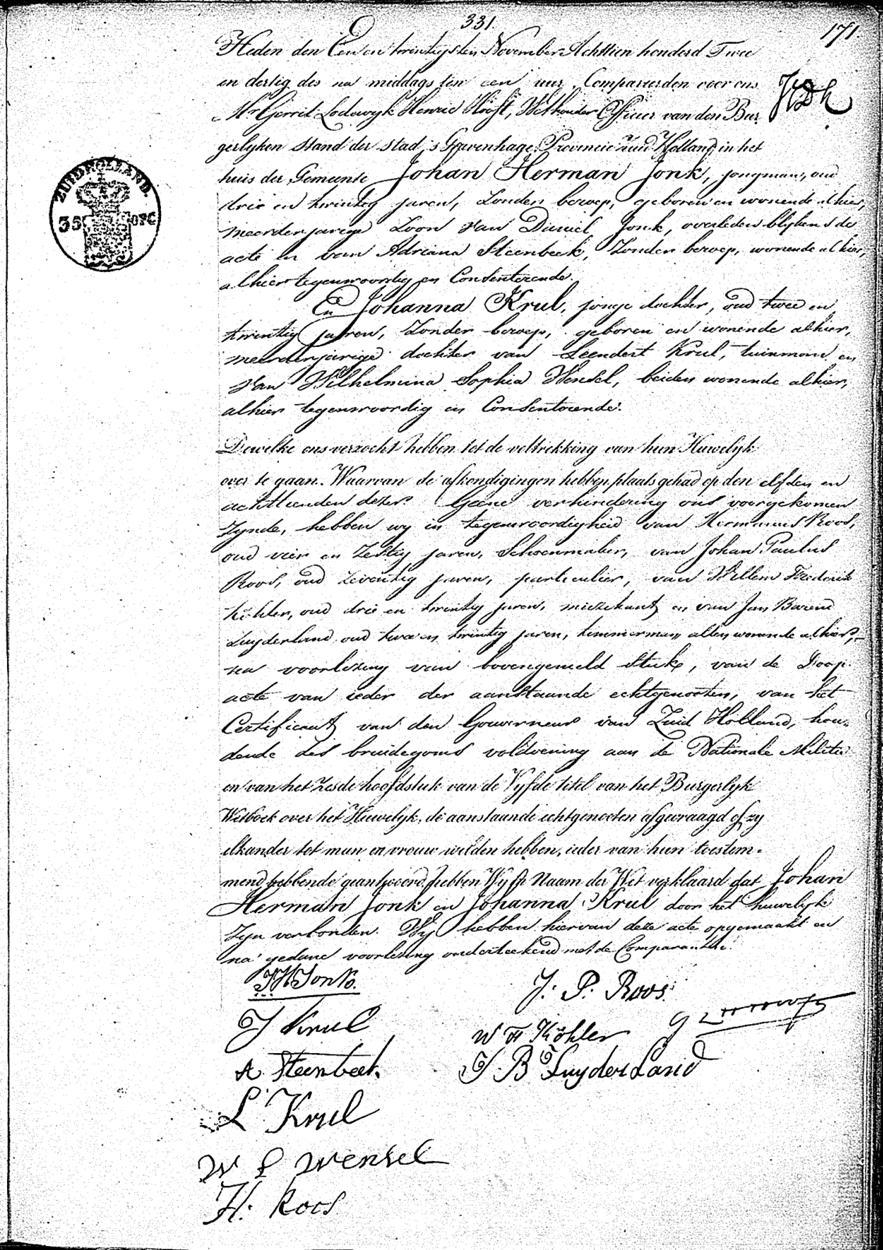 331.
171
Heden den Een en twintigsten November Achttien honderd Twee
en dertig des na middags ten een ure, Compareerden voor ons
Mr Gerrit Lodewyk Henric Hooft, Wethouder Officier van den Bur
gerlyken Stand der stad 's Gravenhage Provincie Zuid Holland, in het
huis der Gemeente Johan Herman Jonk, jongman, oud
drie en twintig jaren, Zonder beroep, geboren en wonende alhier,
meerderjarige Zoon van Daniel Jonk, overleden blykens de
acte en van Adriana Steenbeek, Zonder beroep, wonende alhier,
alhier tegenwoordig en Consenteerende.
En Johanna Krul, jonge dochter, oud twee en
twintig jaren, Zonder beroep, geboren en wonende alhier,
meerderjarige dochter van Leendert Krul, tuinman en
van Wilhelmina Sophia Wensel, beiden wonende alhier,
alhier tegenwoordig en Consenteerende.
Dewelke ons verzocht hebben tot de voltrekking van hun Huwelyk
over te gaan. Waarvan de afkondigingen hebben plaats gehad op den elfden en
achttienden dezer. Geene verhindering ons voorgekomen
zynde, hebben wy in tegenwoordigheid van Hermanus Roos,
oud vier en Zestig jaren, Schoenmaker, van Johan Paulus
Roos, oud Zeventig jaren, particulier, van Willem Frederik
Köhler, oud drie en twintig jaren, muzikant, en van Jan Barend
Luyderland, oud twee en twintig jaren, timmerman, allen wonende alhier,
na voorlezing van bovengemeld Stuk, van de Doop
acte van ieder der aanstaande echtgenooten, van het
Certificaat van den Gouverneur van Zuid Holland, hou-
dende des bruidegoms voldoening aan de Nationale Militie
en van het Zesde hoofdstuk van de Vyfde titel van het Burgerlyk
Wetboek over het Huwelyk, de aanstaande echtgenooten afgevraagd of zy
elkander tot man en vrouw wilden hebben, ieder van hun toestem-
mend hebbende geantwoord, hebben Wy In Naam der Wet verklaard dat Johan
Herman Jonk en Johanna Krul door het huwelyk
Zyn verbonden. Wy hebben hiervan deze acte opgemaakt en
na gedane voorlezing onderteekend met de Comparanten.
ZUID HOLLAND.
35
J H Jonk.
J. P. Roos.
J Krul
W F Köhler
A. Steenbeek.
J B Luyderland
L Krul
W S Wensel
H. Roos